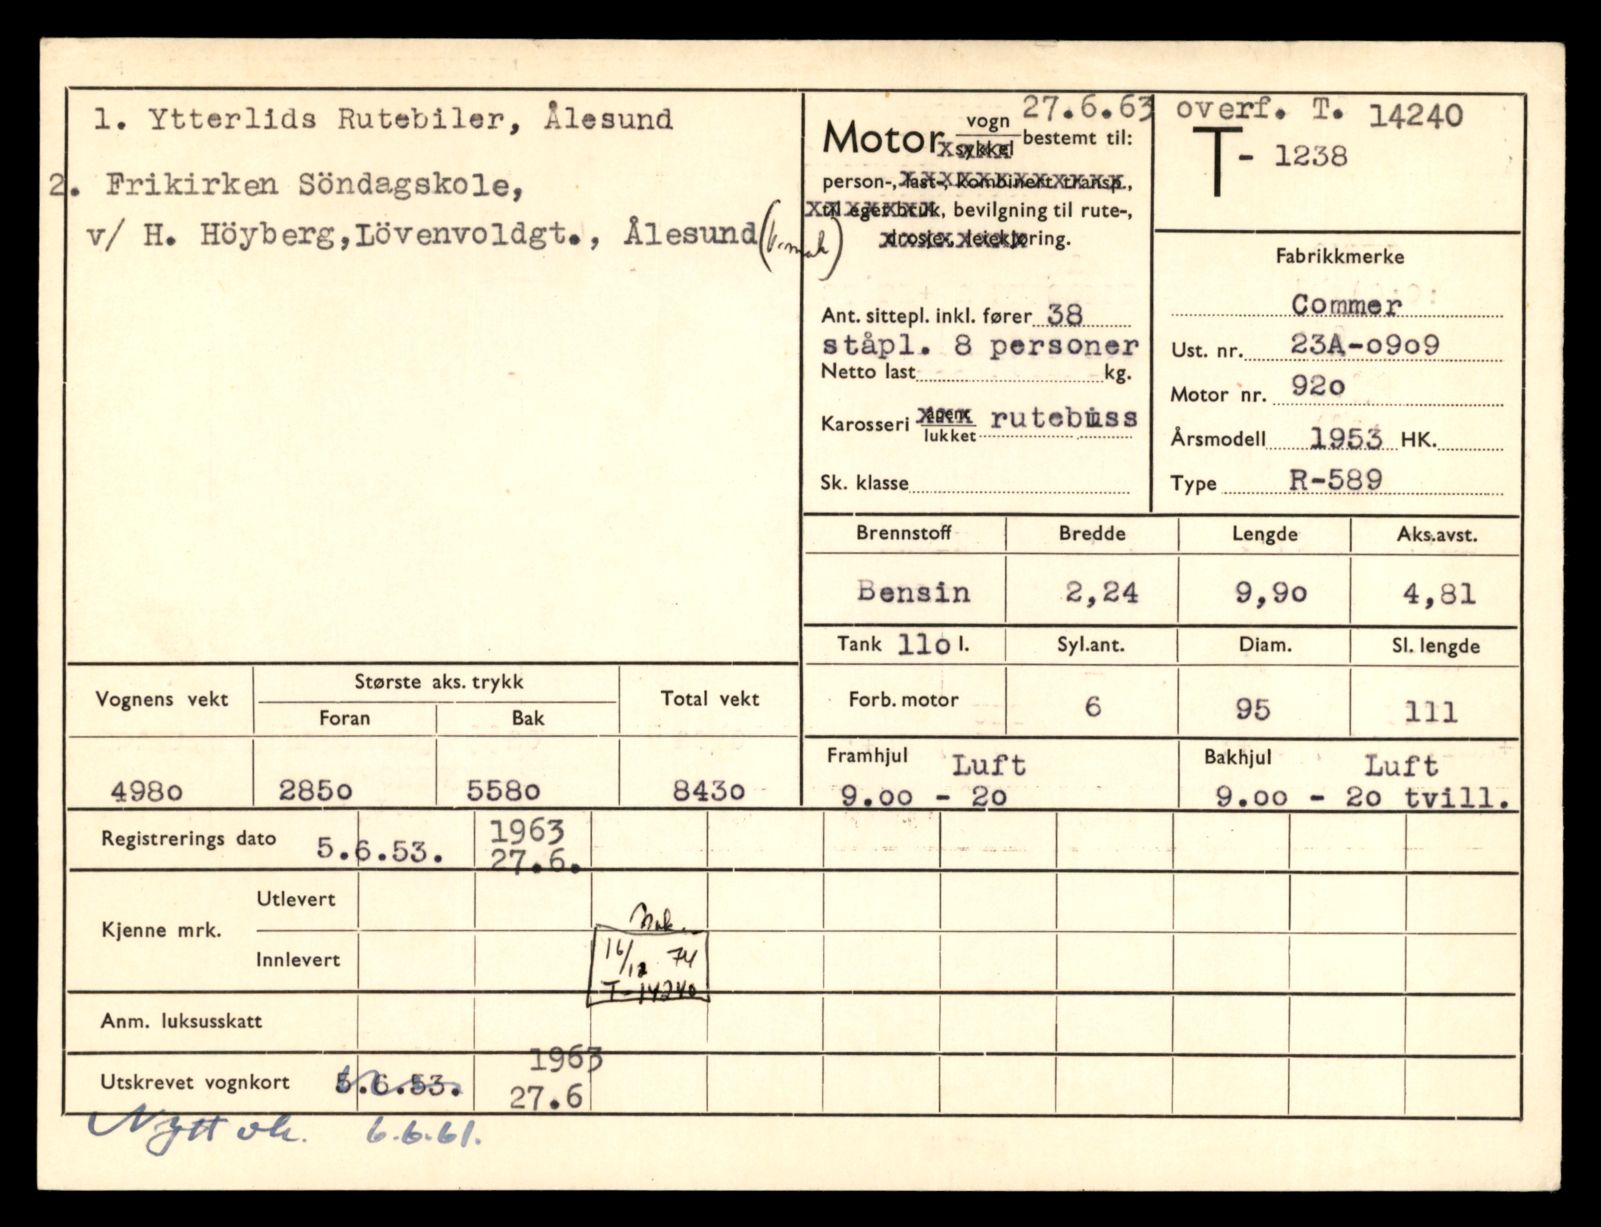 1. Ytterlids Rutebiler, Ålesund
2. Frikirken Söndagskole,
v/ H. Höyberg, Lövenvoldgt., Ålesund
27.6.63 overf. T. 14240
Motor vogn sykkel bestemt til:
person-, last-, kombinert transp.,
til eget bruk, bevilgning til rute-,
drosje-, leiekjøring.
T- 1238
Ant. sittepl. inkl. fører 38
ståpl. 8 personer
Netto last kg.
Karosseri åpent lukket rutebuss
Sk. klasse
Fabrikkmerke
Commer
Ust. nr. 23A-0909
Motor nr. 920
Årsmodell 1953 HK.
Type R-589
Brennstoff Bredde Lengde Aks.avst.
Bensin 2,24 9,90 4,81
Tank 110 l. Syl.ant. Diam. Sl. lengde
Forb. motor 6 95 111
Framhjul Luft Bakhjul Luft
9.00 - 20 9.00 - 20 tvill.
Vognens vekt Største aks. trykk Total vekt
Foran Bak
4980 2850 5580 8430
Registrerings dato 5.6.53. 1963
27.6.
Kjenne mrk.
Utlevert
Innlevert
16/12 74
T-14240
Anm. luksusskatt
Utskrevet vognkort 5.6.53. 1963
27.6
Nytt vk. 6.6.61.